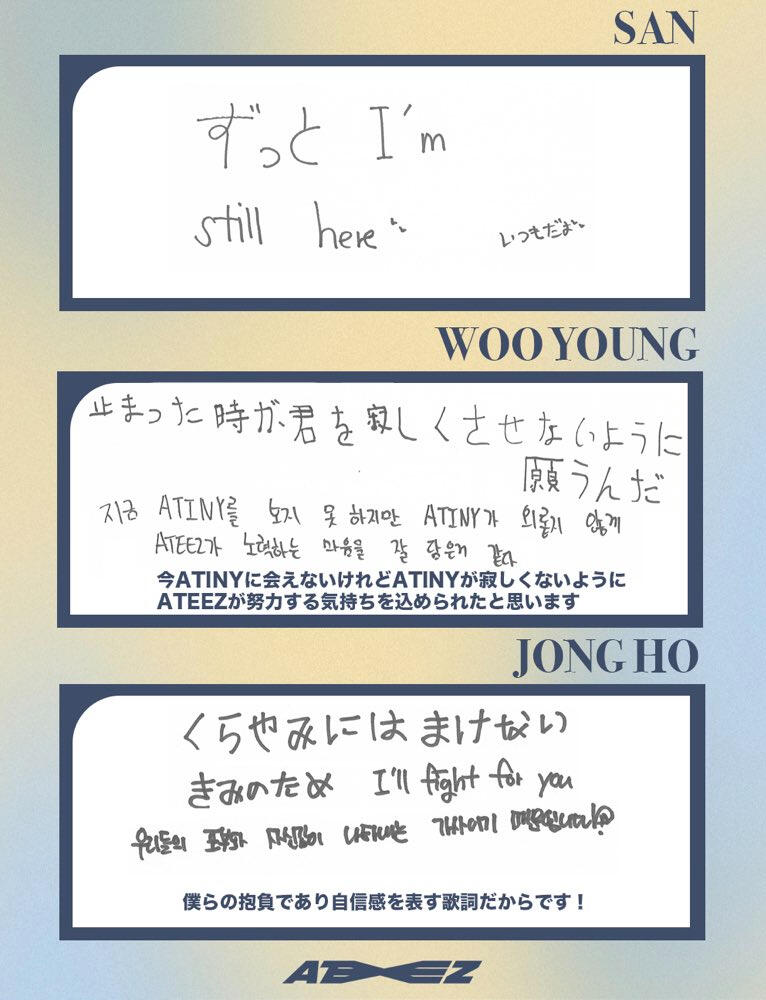 SAN
ずっと I'm
still here
いつもだよ
WOO YOUNG
止まった時が、君を寂しくさせないように
願うんだ
지금 ATINY를 보지 못 하지만 ATINY가 외롭지 않게
ATEEZ가 노력하는 마음을 잘 담은거 같다
今ATINYに会えないけれどATINYが寂しくないように
ATEEZが努力する気持ちを込められたと思います
JONG HO
くらやみにはまけない
きみのため I'll fight for you
우리들의 포부와 자신감이 나타내는 가사이기 때문입니다!
僕らの抱負であり自信感を表す歌詞だからです！
ATEEZ